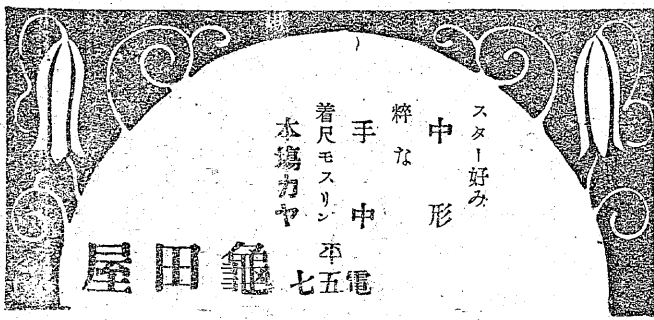 スター好み
中形
粹な
手中
着尺モスリン
本塲カヤ
電五七
龜田屋